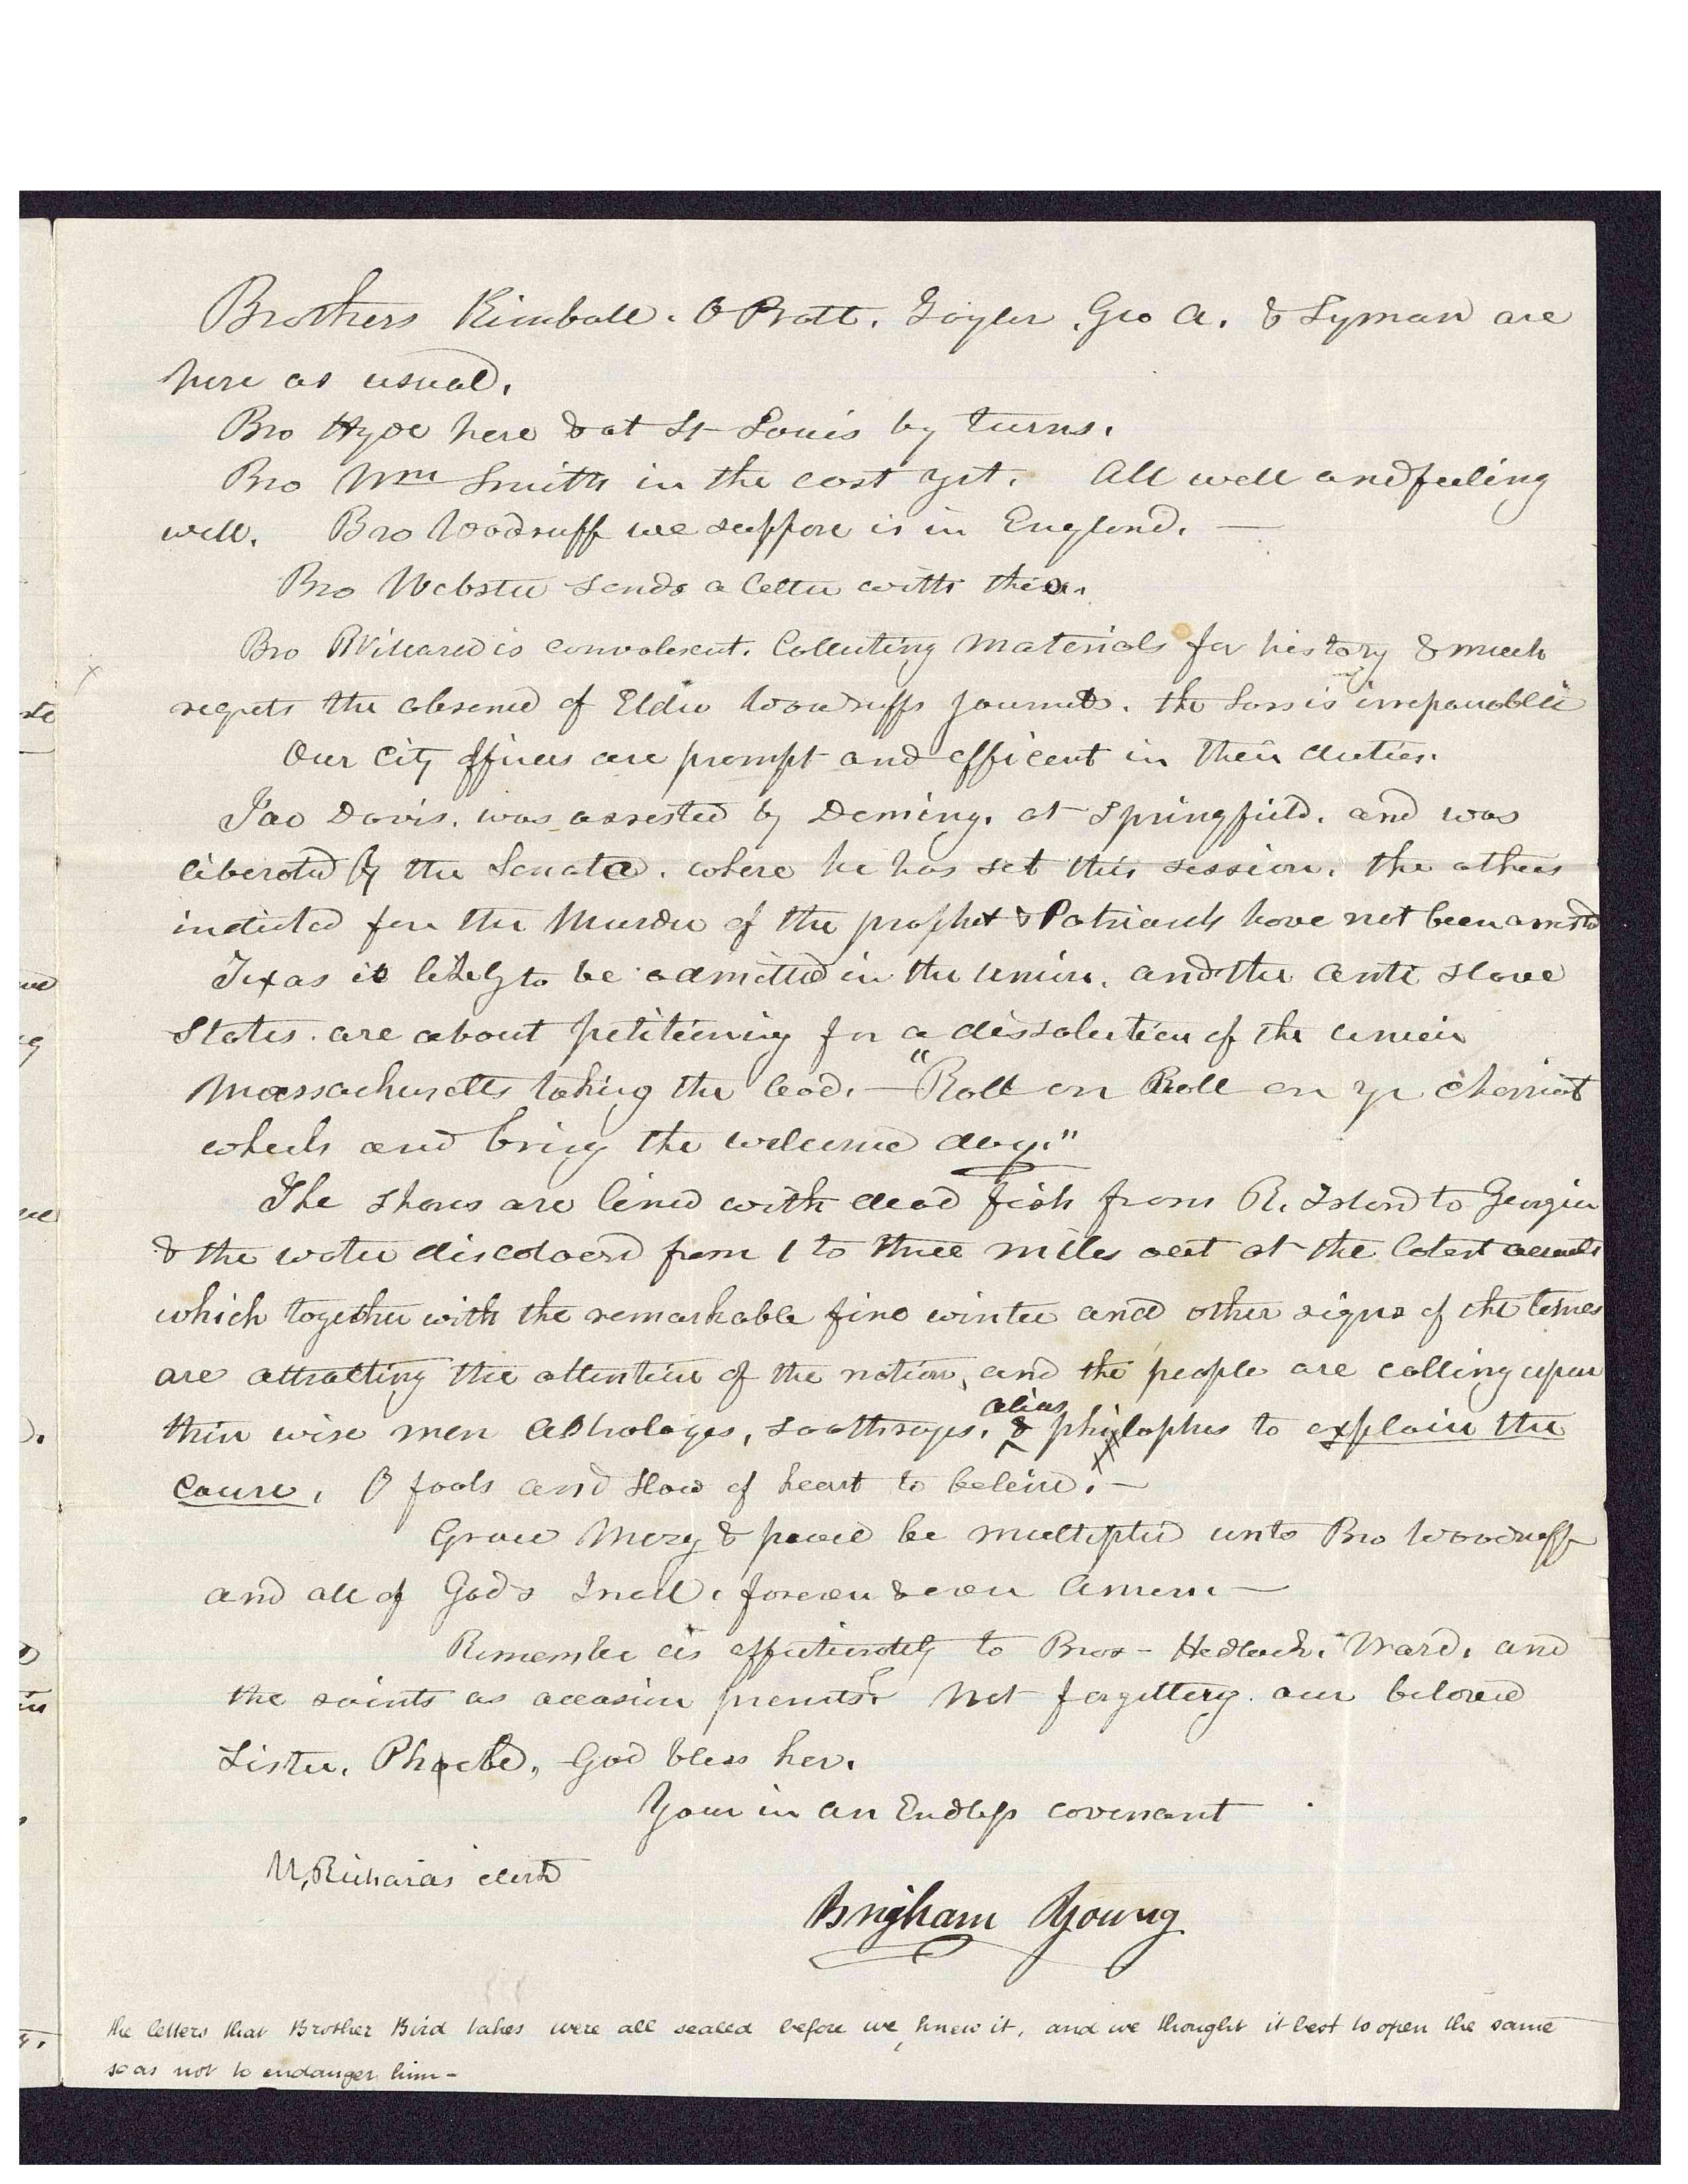 Brothers Kimball. O Pratt. Taylor. Geo A. & Lyman are
here as usual.
Bro Hyde here & at St Louis by turns.
Bro Wm Smith in the east yet. All well and feeling
well. Bro Woodruff we suppose is in England. —
Bro Webster sends a letter with this.
Bro Willard is convalescent. Collecting materials for history & much
regrets the absence of Elder Woodruffs Journals. the loss is irreparable
Our City officers are prompt and efficent in their duties.
Jac Davis. was arrested by Deming. at Springfield. and was
liberated by the Senate. where he has set this session. the others
indicted for the Murder of the prophet & Patriarch have not been arrested
Texas is likely to be admitted in the union. and the anti slave
States. are about petitioning for a dissolution of the union
Massachusetts taking the lead. — "Roll on Roll on ye charriot
wheels and bring the welcome day."
The shores are lined with dead fish from R. Island to Georgia
& the water discolored from 1 to three miles out at the latest accounts
which together with the remarkable fine winter and other signs of the times
are attracting the attention of the nation, and the people are calling upon
their wise men Astrologers, soothsayers, & alias philosophers to explain the
cause. O fools and slow of heart to beleive. —
Grace Mercy & peace be multiplied unto Bro Woodruff
and all of Gods Israel. forever & ever Amen. —
Remember us affectionately to Bros — Hedlock. Ward. and
the saints as occasion presents. Not forgetting. our beloved
Sister. Phoebe, God bless her.
Your in an Endless covenant
W, Richards clerk
Brigham Young
the letters that Brother Bird takes were all sealed before we knew it, and we thought it best to open the same
so as not to endanger him —